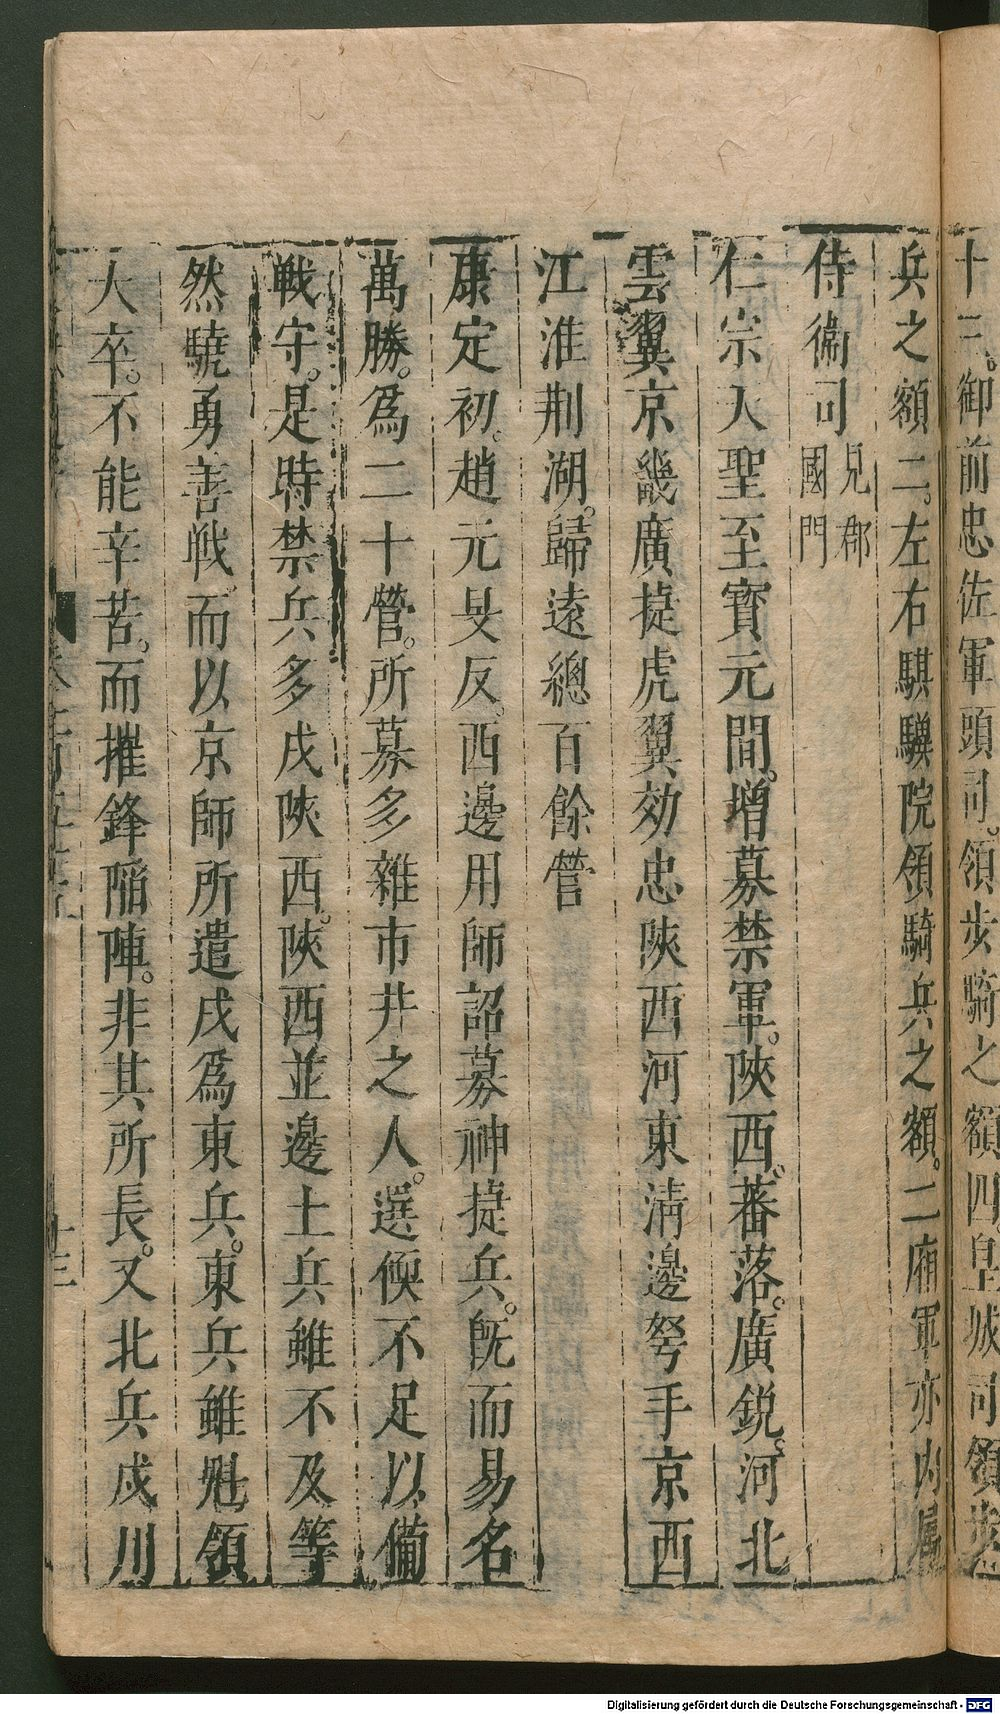 十三御前忠佐軍頭司領步騎之額四皇城司領步
兵之額二左右騏驥院領騎兵之額二廂軍亦內屬
侍衛司見郡國門
仁宗天聖至寶元間增募禁軍陝西蕃落廣銳河北
雲翼京畿廣捷虎翼効忠陝西河東清邊弩手京西
江淮荆湖歸遠總百餘營
康定初趙元旻反西邊用師詔募神捷兵旣而易名
萬勝爲二十營所募多雜市井之人選偄不足以備
戰守是時禁兵多戍陝西陝西並邊土兵雖不及等
然驍勇善戰而以京師所遣戍爲東兵東兵雖魁領
大卒不能辛苦而摧鋒陷陣非其所長又北兵戍川
卷一百五十三
十三
Digitalisierung gefördert durch die Deutsche Forschungsgemeinschaft - DFG